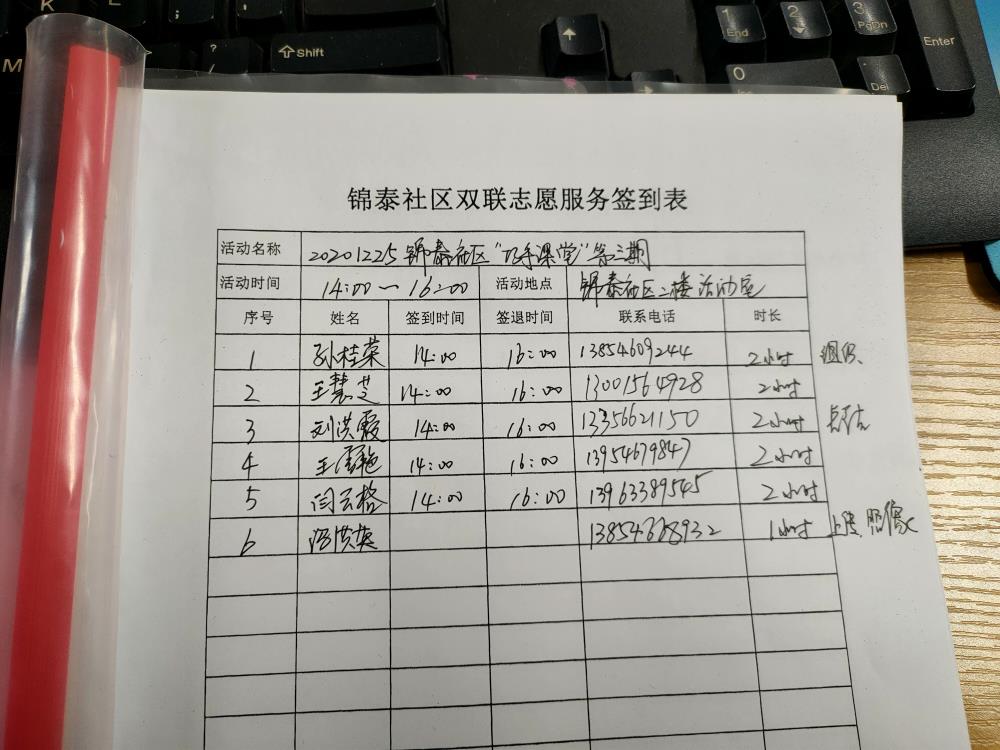 K
M
?
/
Shift
1
End
2
3
PgDn
Enter
0
锦泰社区双联志愿服务签到表
活动名称 20201225锦泰社区“巧手课堂”第三期
活动时间 14:00～16:00 活动地点 锦泰社区二楼活动室
序号 姓名 签到时间 签退时间 联系电话 时长
1 孙桂荣 14:00 16:00 13854609244 2小时
2 王慧芝 14:00 16:00 13001564928 2小时
3 刘洪霞 14:00 16:00 13356621150 2小时
4 王雪艳 14:00 16:00 13954679847 2小时
5 闫云格 14:00 16:00 13963389545 2小时
6 洪英 13854668932 1小时